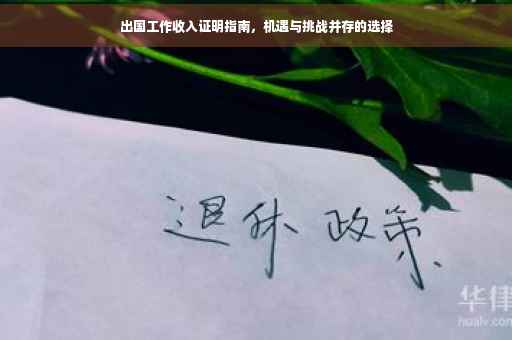 出国工作收入证明指南，机遇与挑战并存的选择
退休政策
华律
hualv.com